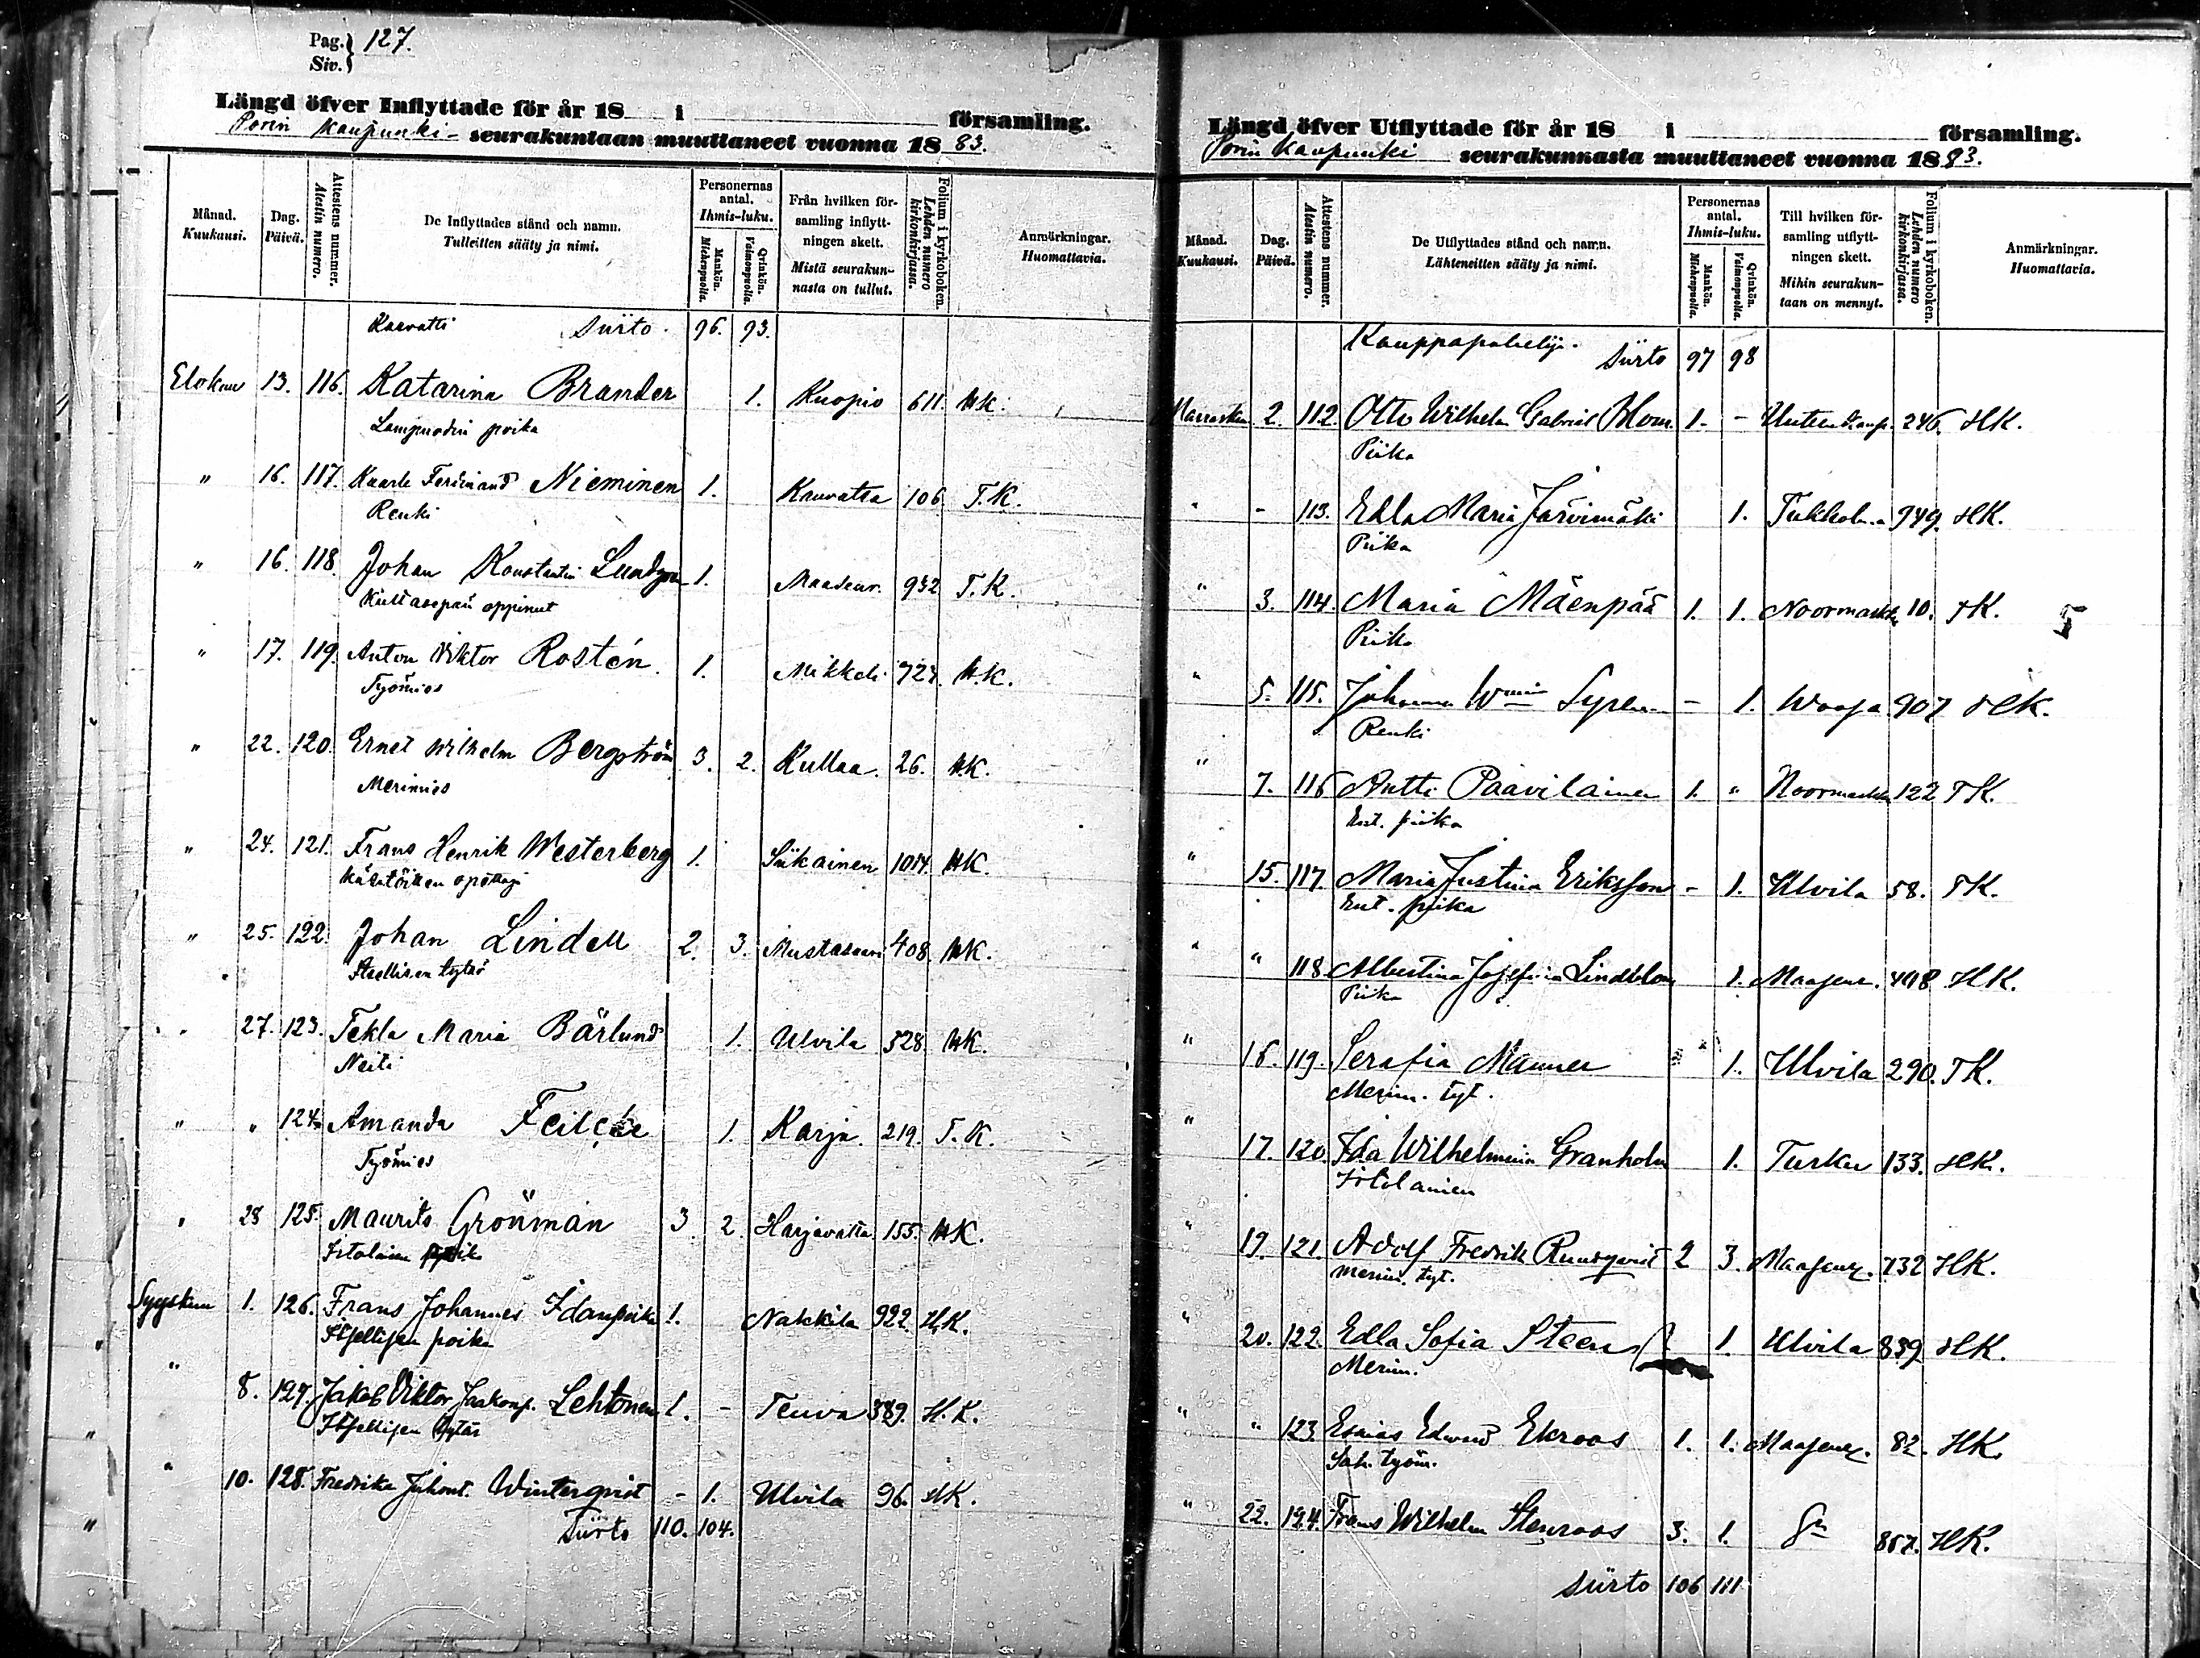 Pag. } 127.
Siv. }
Längd öfver Inflyttade för år 18 i församling.
Porin Kaupunki- seurakuntaan muuttaneet vuonna 1883.
Månad. Kuukausi.
Dag. Päivä.
Attestens nummer. Atestin numero.
De Inflyttades stånd och namn. Tulleitten sääty ja nimi.
Personernas antal. Ihmis-luku.
Mankön. Miehenpuolia.
Qvinkön. Vaimonpuolia.
Från hvilken församling inflyttningen skett. Mistä seurakunnasta on tullut.
Folium i kyrkoboken. Lehden numero kirkonkirjassa.
Anmärkningar. Huomattavia.
Kasvatti Siirto. 96. 93.
Elokuu 13. 116. Katarina Brander 1. Kuopio 611. HK.
poika
" 16. 117. Kaarle Ferdinand Nieminen 1. Kauvatsa 106 T.K.
Renki
" 16. 118. Johan Konstantin 1. Maaseur. 932 T.K.
Kultasepän oppinut
" 17. 119. Anton Viktor Rostén. 1. Mikkeli 724. HK.
Työmies
" 22. 120. Ernst Wilhelm Bergström 3. 2. Kullaa. 26. HK.
Merimies
" 24. 121. Frans Henrik Westerberg 1. Siikainen 1014. HK.
Käsitöitten
" 25. 122. Johan Lindell 2. 3. Mustasaari 408. HK.
Itsellisen tytär
" 27. 123. Tekla Maria Bärlund 1. Ulvila 528. HK.
Neiti
" " 124. Amanda 1. Karja 219. T.K.
Työmies
" 28 125. Maurits Grönman 3 2. Harjavalta 155. HK.
Itolaisen
Syyskuu 1. 126. Frans Johannes 1. Nakkila 922. H.K.
Itsellisen poika
" 8. 127. Jakob Viktor Jaakonp. Lehtonen 1. - Teuva 389. H.K.
Itsellisen tytär
" 10. 128. Fredrika Juhont. Winterqvist - 1. Ulvila 96. HK.
" Siirto 110. 104.
Längd öfver Utflyttade för år 18 i församling.
Porin Kaupunki seurakunnasta muuttaneet vuonna 1883.
Månad. Kuukausi.
Dag. Päivä.
Attestens nummer. Atestin numero.
De Utflyttades stånd och namn. Lähteneitten sääty ja nimi.
Personernas antal. Ihmis-luku.
Mankön. Miehenpuolia.
Qvinkön. Vaimonpuolia.
Till hvilken församling utflyttningen skett. Mihin seurakuntaan on mennyt.
Folium i kyrkoboken. Lehden numero kirkonkirjassa.
Anmärkningar. Huomattavia.
Kauppapalvelija. Siirto 97 98
Marrasku 2. 112. Otto Wilhelm Gabriel Blom. 1. - 246. HK.
Piika
" - 113. Edla Maria Järvimäki 1. Tukholma 949. HK.
Piika
" 3. 114. Maria Mäenpää 1. 1. Noormarkku 10. TK.
Piika
" 5. 115. Johanna Wmin 1. Waasa 907 HK.
Renki
" 7. 116 Antti Paavilainen 1. " Noormarkku 122 TK.
Ent. piika
" 15. 117. Maria Justina Eriksson - 1. Ulvila 58. TK.
Ent. piika
" " 118. Albertina Josefina Lindblom 1. Maaseur. 498 HK.
Piika
" 16. 119. Serafia Manner " 1. Ulvila 290. TK.
Merim. tyt.
" 17. 120. Ida Wilhelmina Granholm 1. Turku 133. HK.
Itolainen
" 19. 121. Adolf Fredrik Rundqvist 2 3. Maaseur. 732 HK.
Merim. tyt.
" 20. 122. Edla Sofia Steen 1. Ulvila 839 HK.
Merim.
" " 123. Esaias Edvard Ekroos 1. 1. Maaseur. 82. HK.
Sah. työm.
" 22. 124. Frans Wilhelm Stenroos 3. 1. 857. HK.
Siirto 106 111